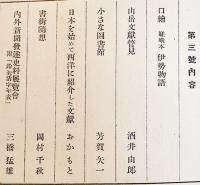 第三號內容
口繪 嵯峨本 伊勢物語
山岳文獻管見 酒井由郎
小さな圖書館 芳賀矢一
日本を始めて西洋に紹介した文獻 おかもと
書街隨想 岡村千秋
內外新聞發達史料展覽會 三橋猛雄